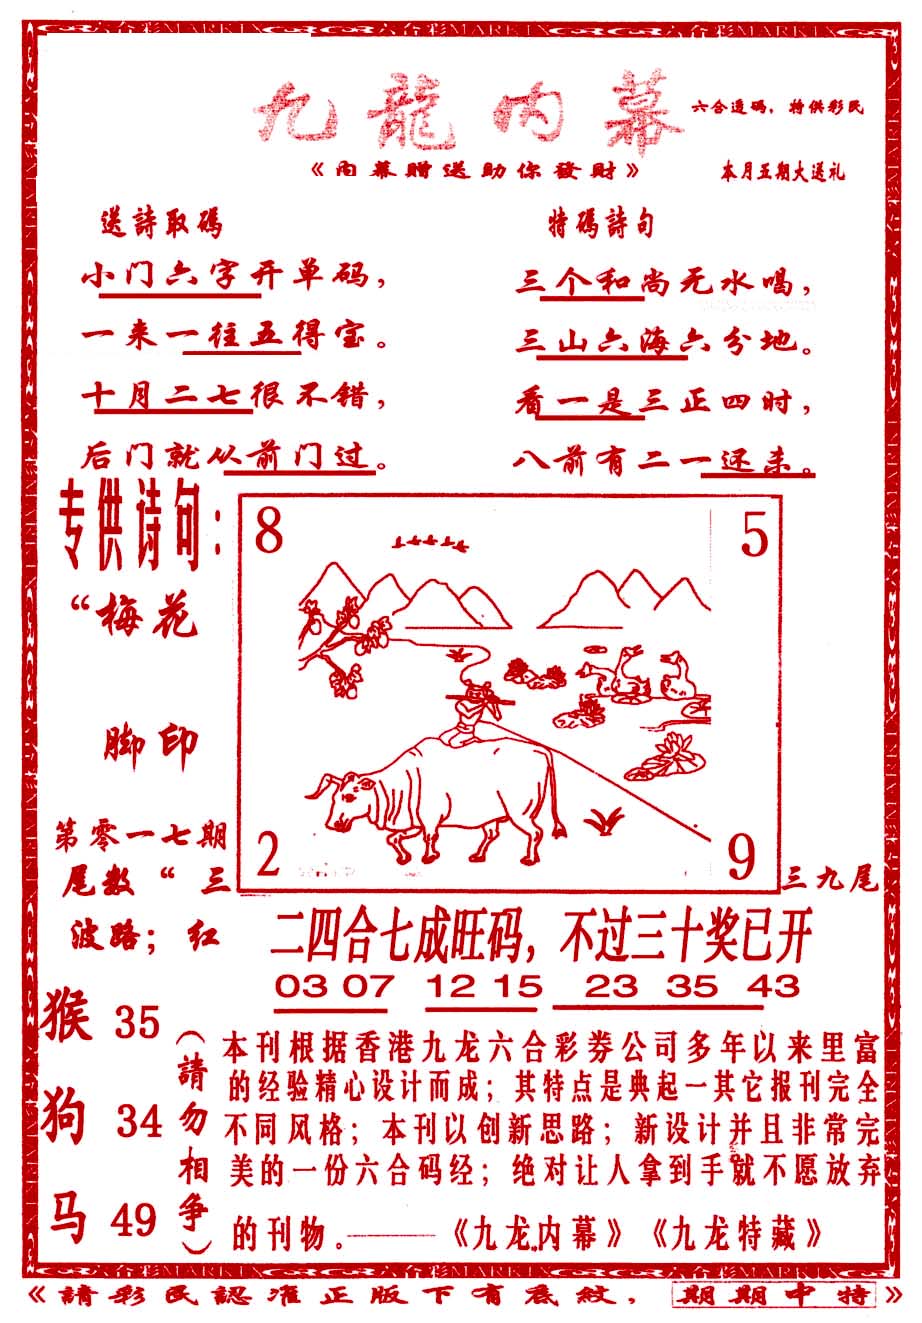 九龍内幕
六合透码，特供彩民
《内幕赠送助你發財》
本月五期大送礼
送詩取碼
小门六字开单码，
一来一往五得宝。
十月二七很不错，
后门就从前门过。
特碼詩句
三个和尚无水喝，
三山六海六分地。
看一是三正四时，
八前有二一还来。
专供诗句：
“梅花
脚印
第零一七期
8
5
2
9
尾数“三
三九尾
波路；红
二四合七成旺码，不过三十奖已开
03 07 12 15 23 35 43
猴 35
狗 34
马 49
（請勿相争）
本刊根据香港九龙六合彩券公司多年以来里富
的经验精心设计而成；其特点是典起一其它报刊完全
不同风格；本刊以创新思路；新设计并且非常完
美的一份六合码经；绝对让人拿到手就不愿放弃
的刊物。——《九龙内幕》《九龙特藏》
《請彩民認准正版下有底紋，期期中特》